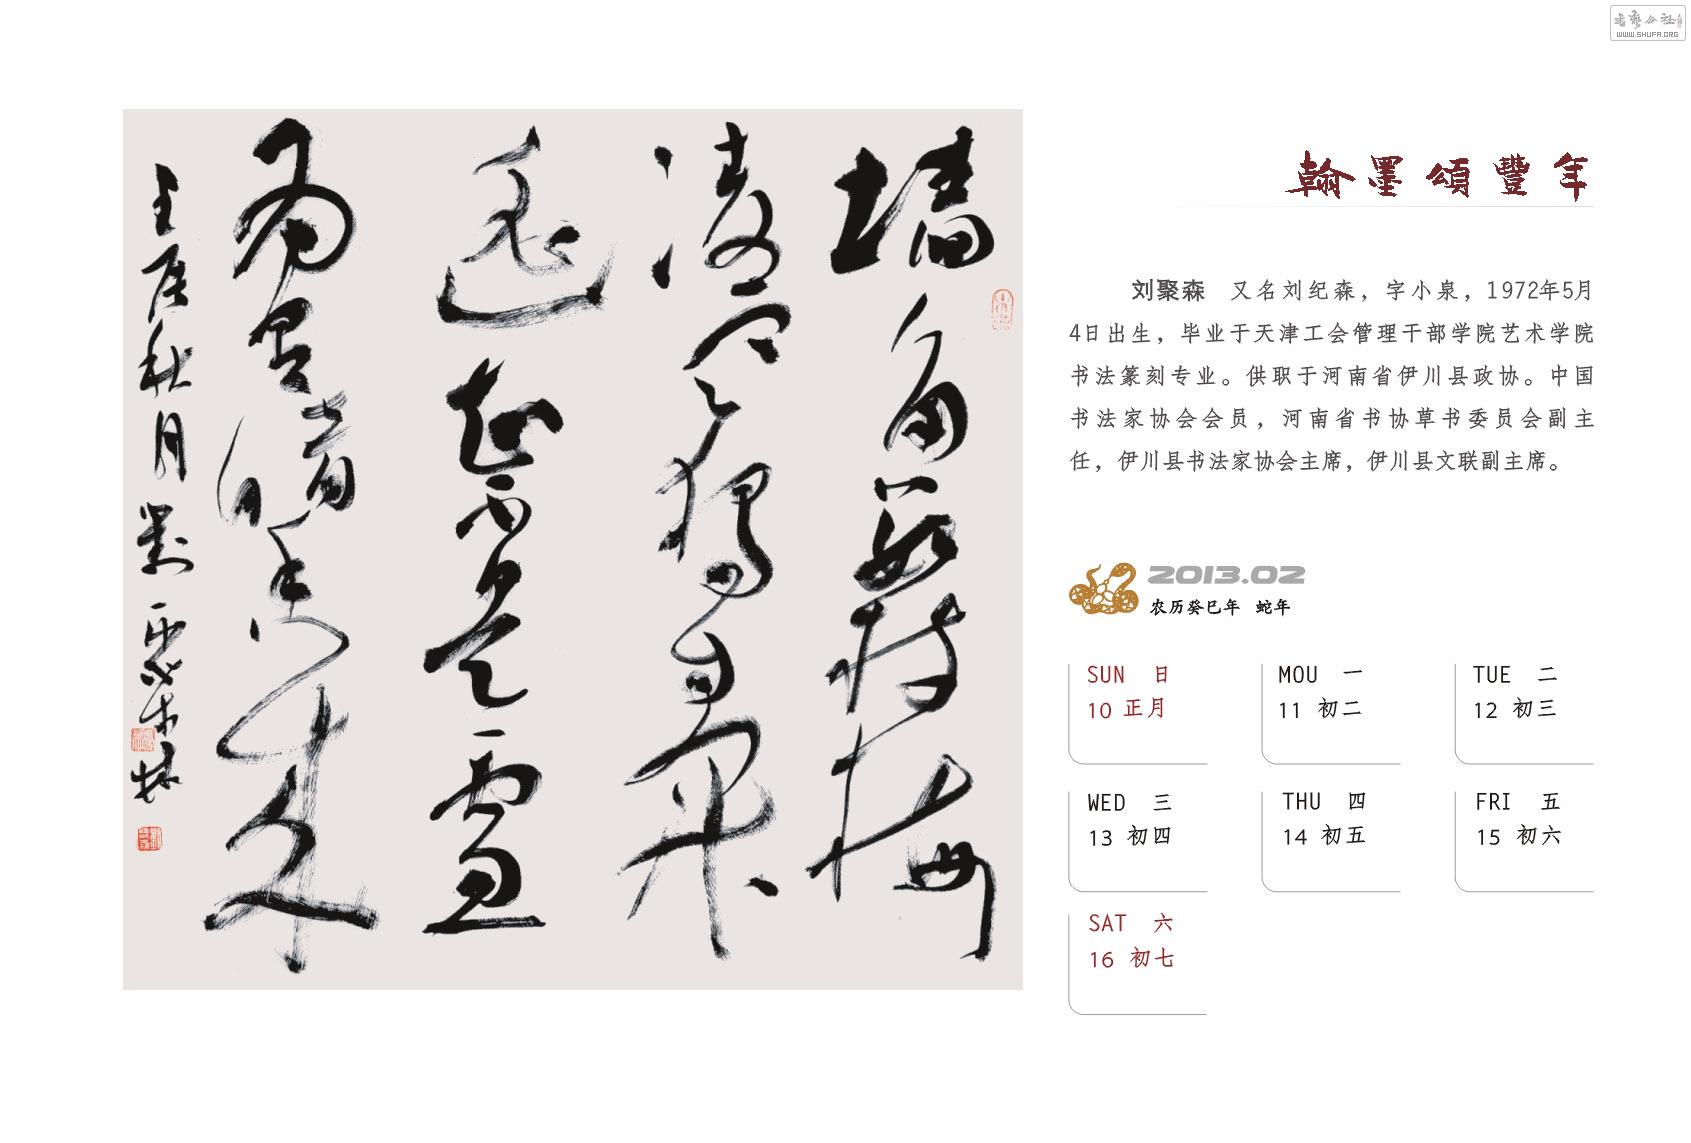 墙角数枝梅
凌寒独自开
遥知不是雪
为有暗香来
壬辰秋月刘聚森
翰墨頌豐年
刘聚森 又名刘纪森，字小泉，1972年5月
4日出生，毕业于天津工会管理干部学院艺术学院
书法篆刻专业。供职于河南省伊川县政协。中国
书法家协会会员，河南省书协草书委员会副主
任，伊川县书法家协会主席，伊川县文联副主席。
2013.02
农历癸巳年 蛇年
SUN 日
10 正月
MOU 一
11 初二
TUE 二
12 初三
WED 三
13 初四
THU 四
14 初五
FRI 五
15 初六
SAT 六
16 初七
WWW.SHUFA.ORG